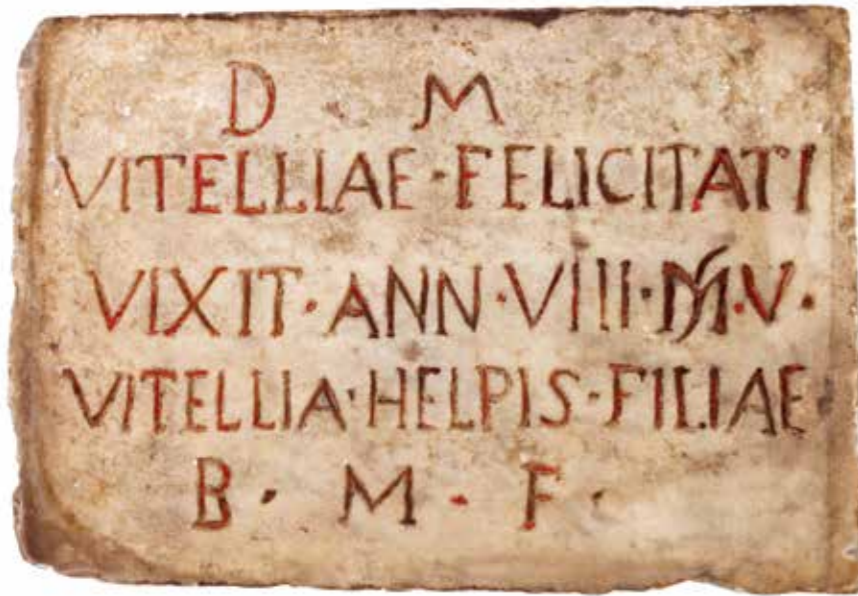 D M
VITELLIAE·FELICITATI
VIXIT·ANN·VIII·M·V·
VITELLIA·HELPIS·FILIAE
B·M·F·